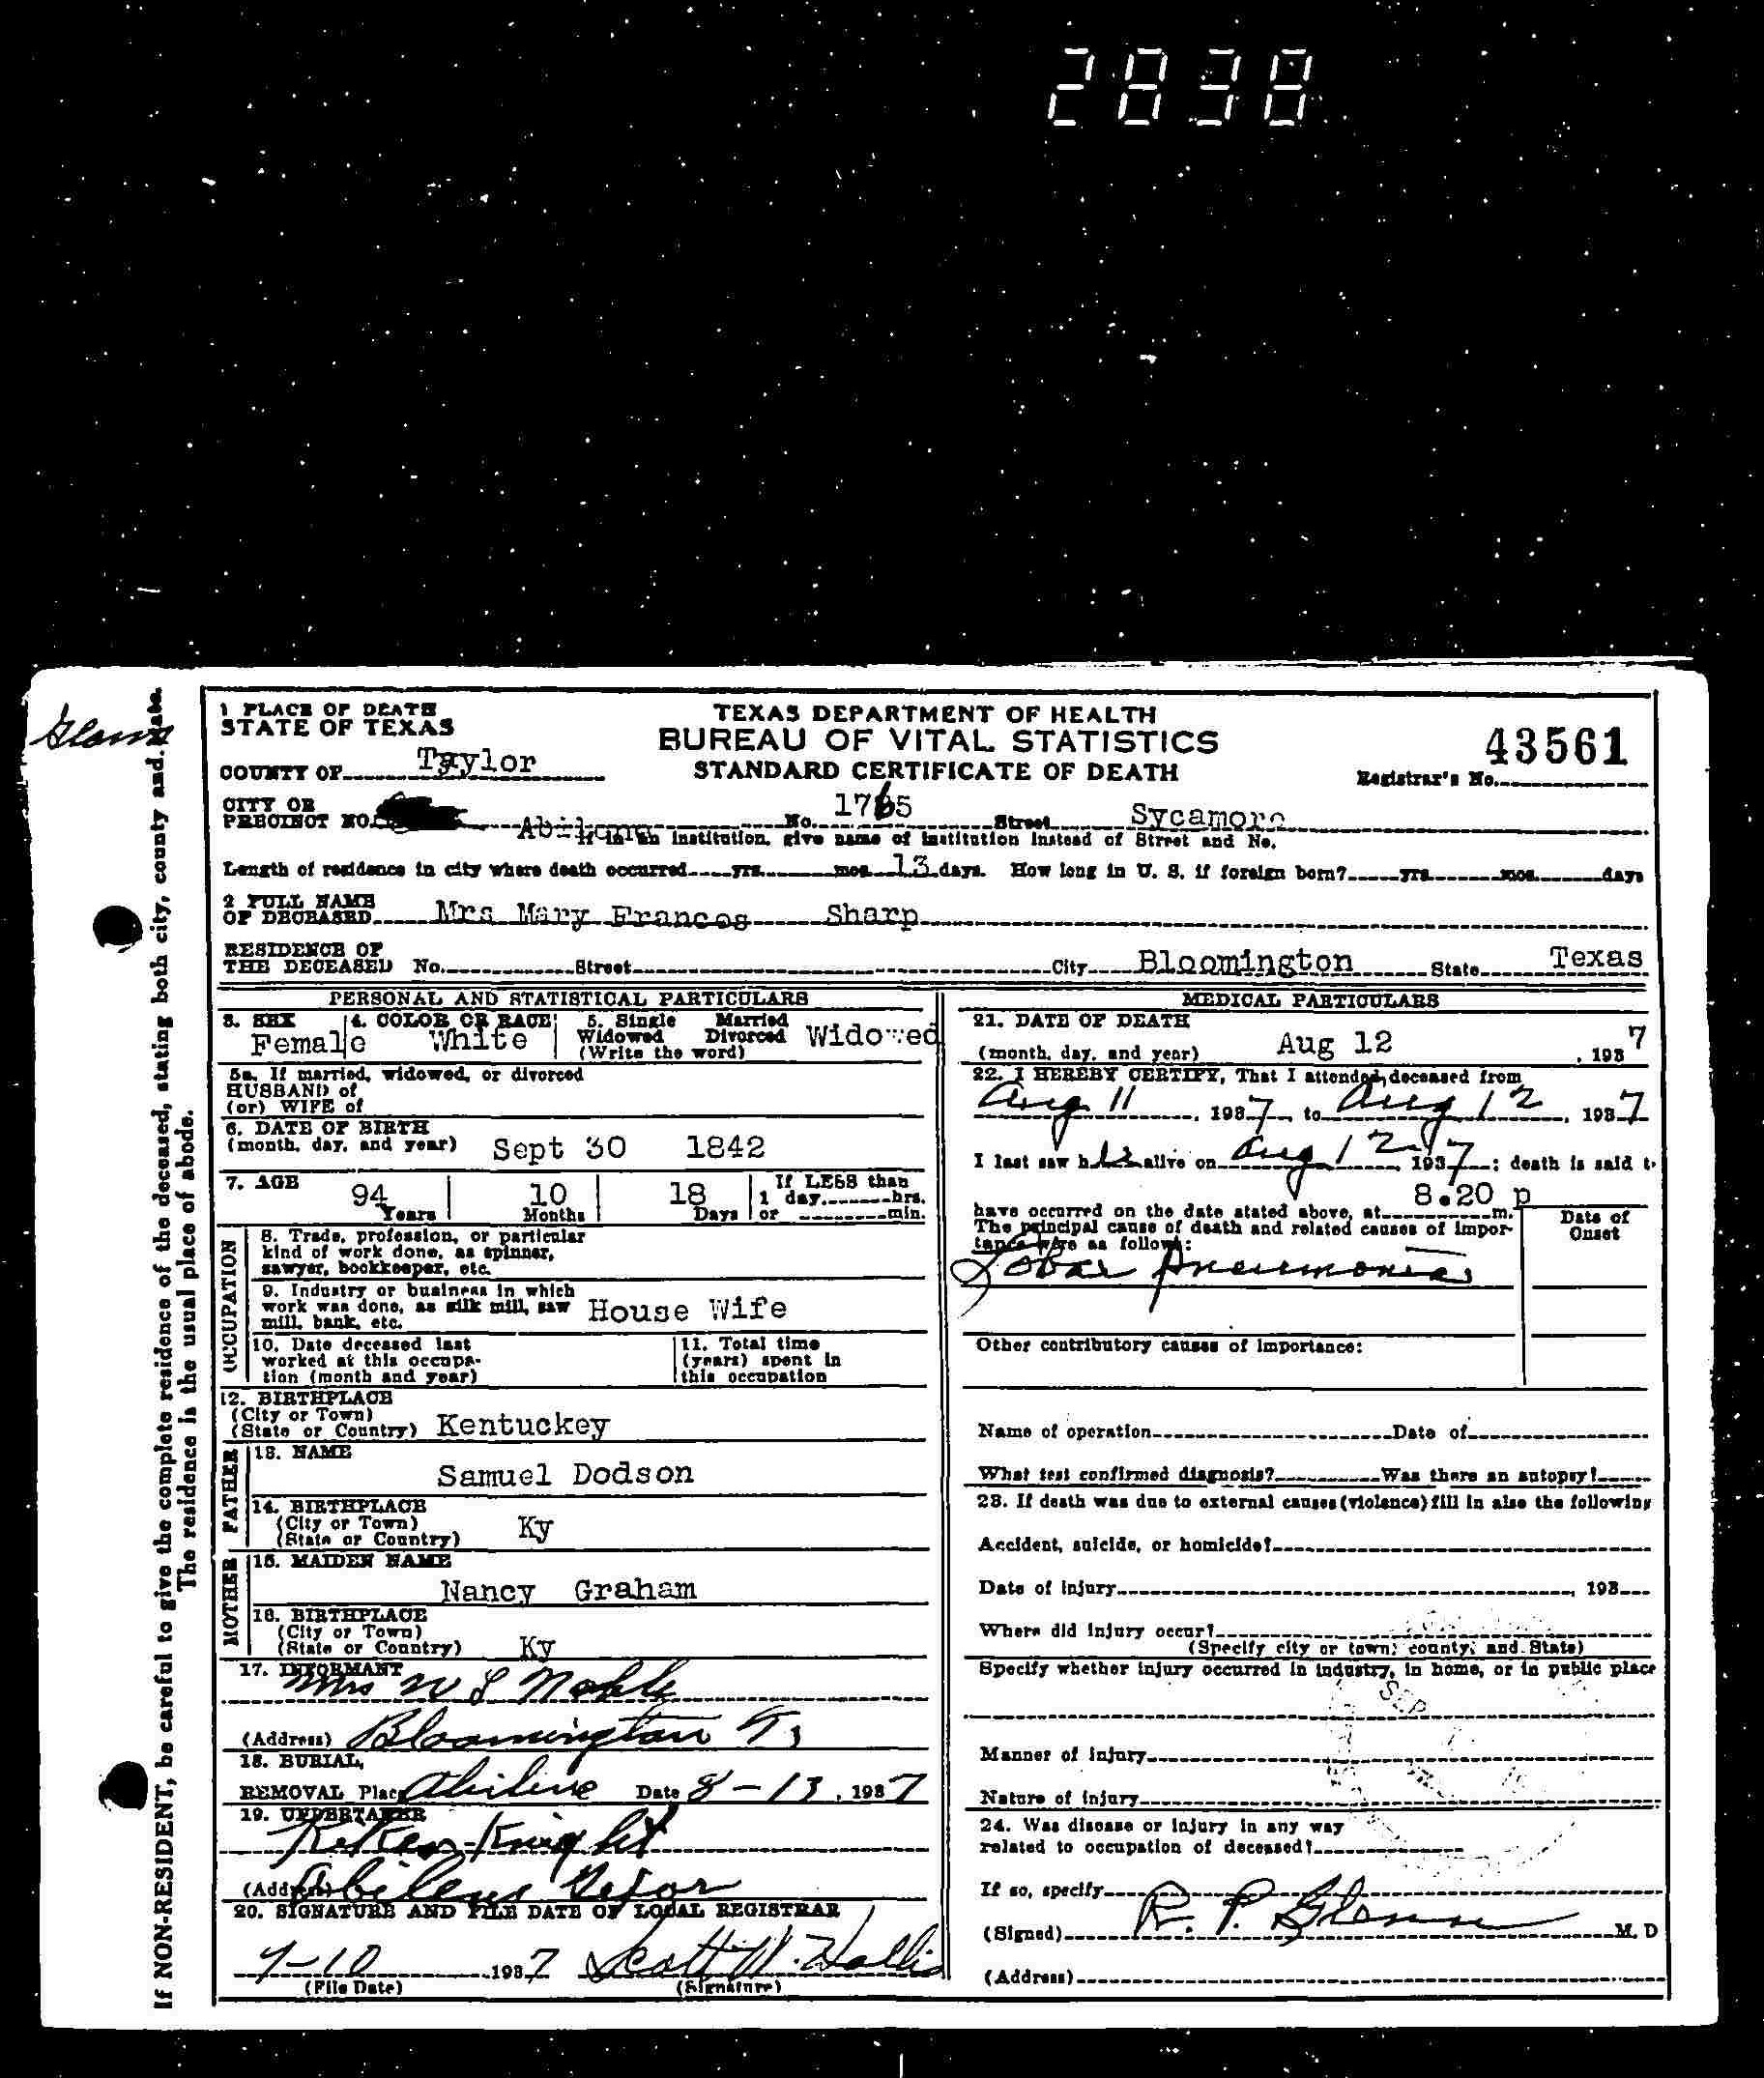 2838
Glenn
If NON-RESIDENT, be careful to give the complete residence of the deceased, stating both city, county and state.
The residence is the usual place of abode.
1 PLACE OF DEATH
STATE OF TEXAS
COUNTY OF Taylor
TEXAS DEPARTMENT OF HEALTH
BUREAU OF VITAL STATISTICS
STANDARD CERTIFICATE OF DEATH
43561
Registrar's No.
CITY OR
PRECINCT NO. Abilene No. 1765 Street Sycamore
If in an institution, give name of institution instead of Street and No.
Length of residence in city where death occurred yrs. mos. 13 days. How long in U. S. if foreign born? yrs. mos. days
2 FULL NAME
OF DECEASED Mrs Mary Frances Sharp
RESIDENCE OF
THE DECEASED No. Street City Bloomington State Texas
PERSONAL AND STATISTICAL PARTICULARS
3. SEX 4. COLOR OR RACE 5. Single Married
Female White Widowed Divorced Widowed
(Write the word)
5a. If married, widowed, or divorced
HUSBAND of
(or) WIFE of
6. DATE OF BIRTH
(month, day, and year) Sept 30 1842
7. AGE 94 Years 10 Months 18 Days If LESS than
1 day hrs.
or min.
OCCUPATION
8. Trade, profession, or particular
kind of work done, as spinner,
sawyer, bookkeeper, etc.
9. Industry or business in which
work was done, as silk mill, saw
mill, bank, etc. House Wife
10. Date deceased last
worked at this occupa-
tion (month and year)
11. Total time
(years) spent in
this occupation
12. BIRTHPLACE
(City or Town)
(State or Country) Kentuckey
FATHER
13. NAME
Samuel Dodson
14. BIRTHPLACE
(City or Town)
(State or Country) Ky
MOTHER
15. MAIDEN NAME
Nancy Graham
16. BIRTHPLACE
(City or Town)
(State or Country) Ky
17. INFORMANT
Mrs W L Noble
(Address) Bloomington Tx
18. BURIAL,
REMOVAL Place Abilene Date 8-13, 1937
19. UNDERTAKER
Kiker-Knight
(Address) Abilene Texas
20. SIGNATURE AND FILE DATE OF LOCAL REGISTRAR
9-10 1937 Scott W. Hollis
(File Date) (Signature)
MEDICAL PARTICULARS
21. DATE OF DEATH
(month, day, and year) Aug 12, 1937
22. I HEREBY CERTIFY, That I attended deceased from
Aug 11, 1937, to Aug 12, 1937
I last saw her alive on Aug 12, 1937; death is said t
have occurred on the date stated above, at 8.20 p m.
The principal cause of death and related causes of impor-
tance were as follows:
Date of
Onset
Lobar Pneumonia
Other contributory causes of importance:
Name of operation Date of
What test confirmed diagnosis? Was there an autopsy?
23. If death was due to external causes (violence) fill in also the following
Accident, suicide, or homicide?
Date of injury , 193
Where did injury occur?
(Specify city or town; county, and State)
Specify whether injury occurred in industry, in home, or in public place
SEP
Manner of injury
Nature of injury
24. Was disease or injury in any way
related to occupation of deceased?
If so, specify
(Signed) R. P. Glenn M. D
(Address)